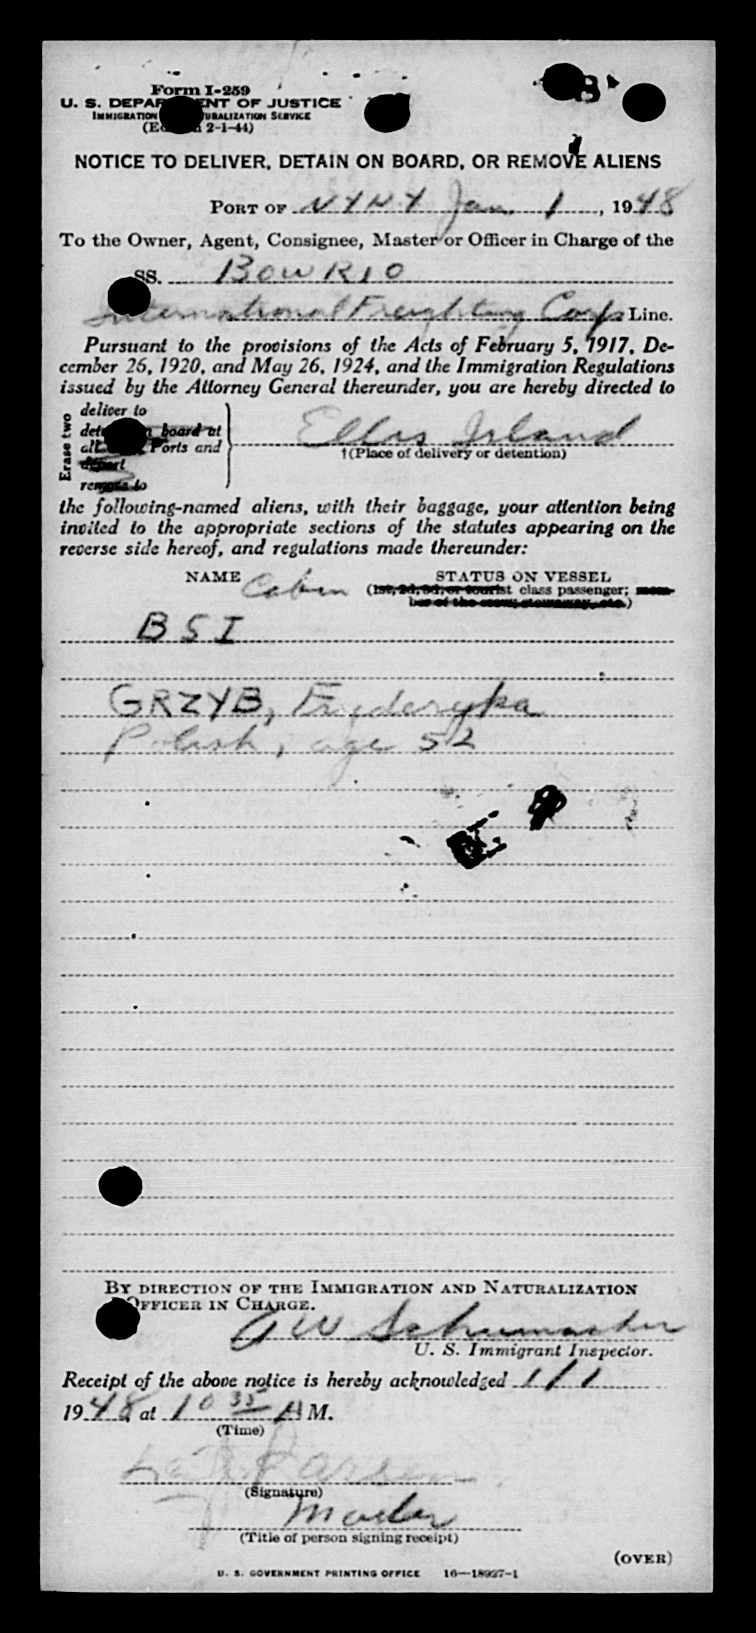 Form I-259
U. S. DEPARTMENT OF JUSTICE
IMMIGRATION NATURALIZATION SERVICE
(Edition 2-1-44)
NOTICE TO DELIVER, DETAIN ON BOARD, OR REMOVE ALIENS
PORT OF NYNY Jan. 1, 1948
To the Owner, Agent, Consignee, Master or Officer in Charge of the
SS. BOW RIO
International Freighting Corp Line.
Pursuant to the provisions of the Acts of February 5, 1917, De-
cember 26, 1920, and May 26, 1924, and the Immigration Regulations
issued by the Attorney General thereunder, you are hereby directed to
Erase two
deliver to
detain on board at
all Ports and
deport
remove to
Ellis Island
†(Place of delivery or detention)
the following-named aliens, with their baggage, your attention being
invited to the appropriate sections of the statutes appearing on the
reverse side hereof, and regulations made thereunder:
NAME Cabin STATUS ON VESSEL
(1st, 2d, 3d, or tourist class passenger; mem-
ber of the crew; stowaway, etc.)
BSI
GRZYB, Fryderyka
Polish, age 52
BY DIRECTION OF THE IMMIGRATION AND NATURALIZATION
OFFICER IN CHARGE.
A W Schumacher
U. S. Immigrant Inspector.
Receipt of the above notice is hereby acknowledged 1/1
1948, at 10 35 AM.
(Time)
Larsen
(Signature)
Master
(Title of person signing receipt)
(OVER)
U. S. GOVERNMENT PRINTING OFFICE 16—18927-1